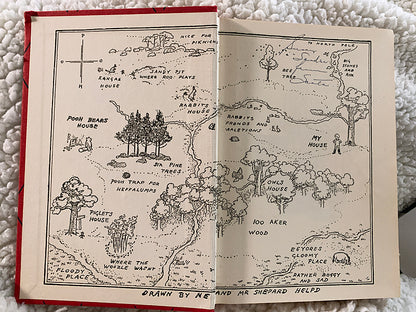 NICE FOR
PICNICKS
TO NORTH POLE
KANGAS
HOUSE
SANDY PIT
WHERE ROO PLAYS
BEE
TREE
BIG
STONES
AND
ROX
RABBITS
HOUSE
RABBITS
FRENDS AND
RALETIONS
POOH BEARS
HOUSE
MY
HOUSE
SIX PINE
TREES
POOH TRAP FOR
HEFFALUMPS
OWLS
HOUSE
PIGLETS
HOUSE
100 AKER
WOOD
WHERE THE
WOOZLE WASNT
FLOODY
PLACE
EEYORES
GLOOMY
PLACE
RATHER BOGGY
AND SAD
DRAWN BY ME AND MR SHEPARD HELPD